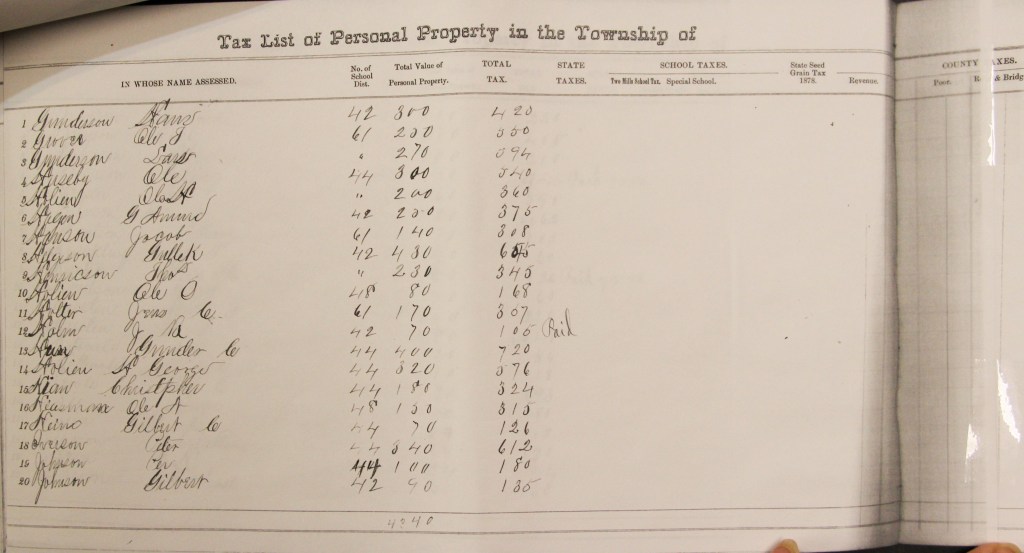 Tax List of Personal Property in the Township of
IN WHOSE NAME ASSESSED. No. of School Dist. Total Value of Personal Property. TOTAL TAX. STATE TAXES. SCHOOL TAXES. Two Mills School Tax. Special School. State Seed Grain Tax 1878. Revenue. COUNTY TAXES. Poor. & Bridg
1 Gunderson Hans 42 300 420
2 Grover Ole 61 250 550
3 Gunderson Lars " 270 594
4 Huseby Ole 44 300 540
5 Holien Ole H " 200 360
6 Hagen G Amund 42 250 375
7 Hanson Jacob 61 140 308
8 Gullek 42 430 645
9 Thos " 230 345
10 Holien Ole O 48 80 168
11 Holter Jens C. 61 170 307
12 Holm J 42 70 105 Paid
13 Gunder C 44 400 720
14 Holien H George 44 320 576
15 Christopher 44 180 324
16 Ole A 48 150 315
17 Gilbert C 44 70 126
18 Iverson Peter 44 340 612
19 Johnson 44 100 180
20 Johnson Gilbert 42 90 135
4340